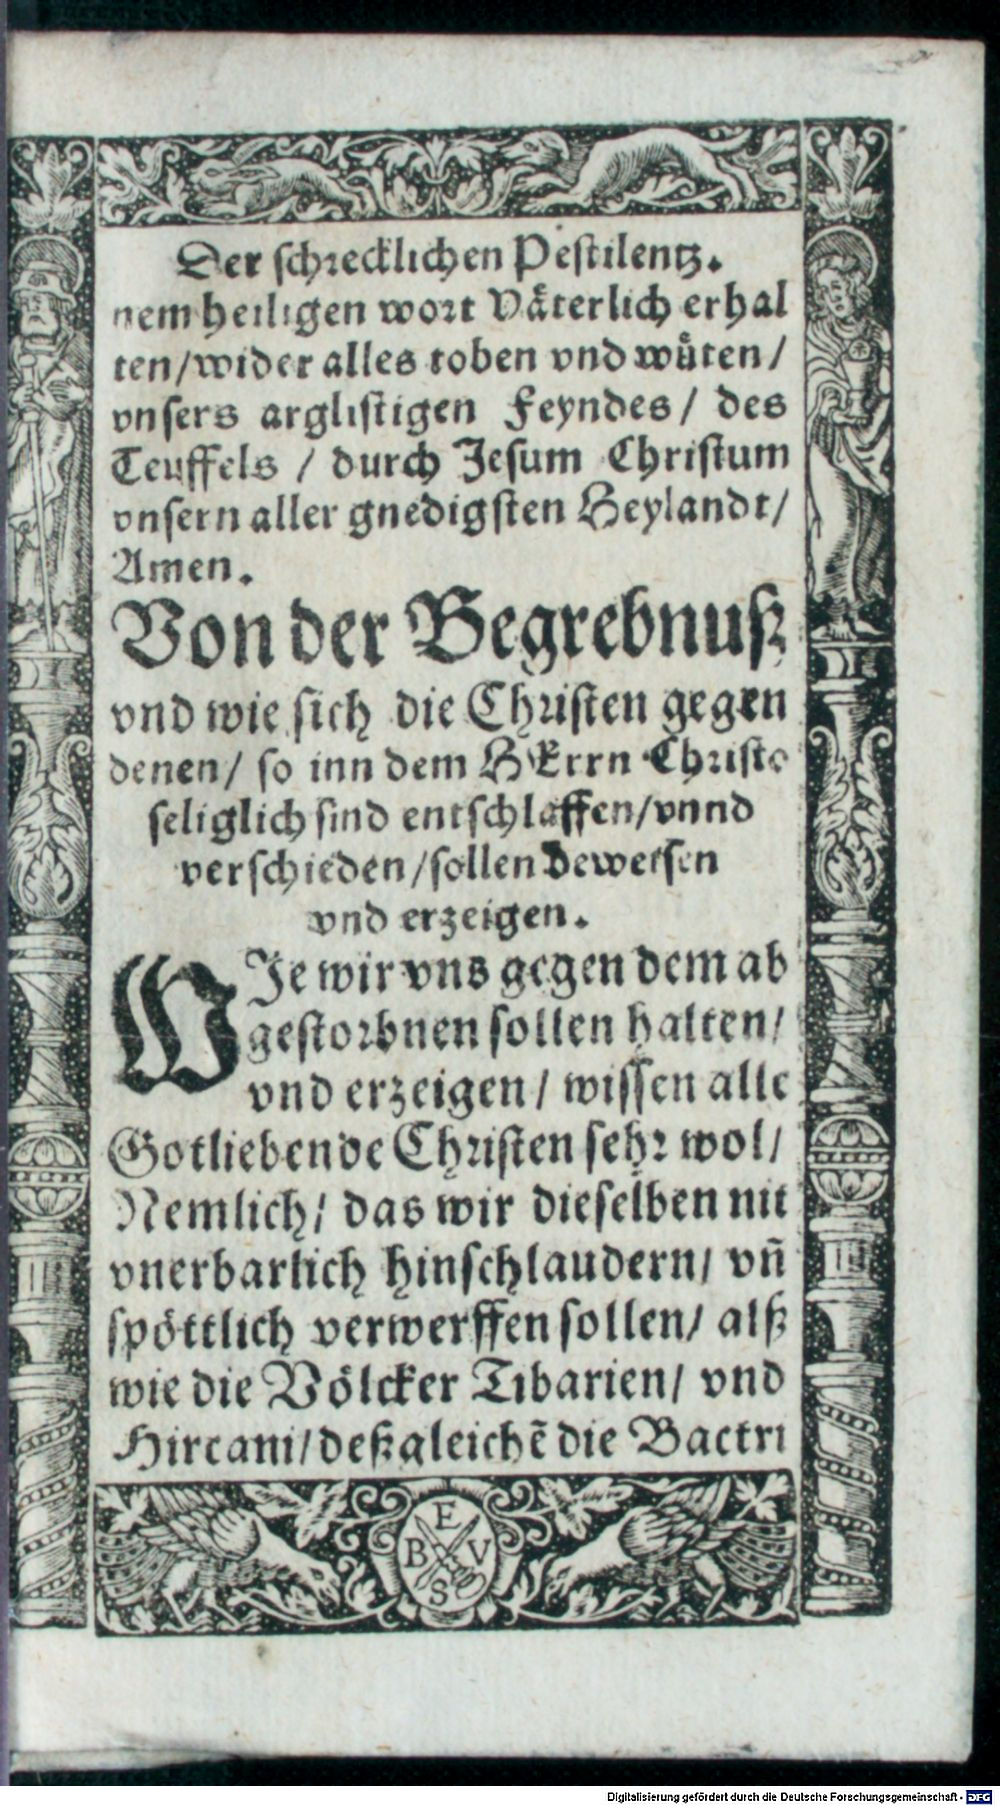 Der schrecklichen Pestilentz.
nem heiligen wort Vaͤterlich erhal
ten/wider alles toben vnd wuͤten/
vnsers arglistigen Feyndes/ des
Teuffels / durch Jesum Christum
vnsern aller gnedigsten Heylandt/
Amen.
Von der Begrebnuß
vnd wie sich die Christen gegen
denen/ so inn dem HErrn Christo
seliglich sind entschlaffen/vnnd
verschieden/sollen beweisen
vnd erzeigen.
WJe wir vns gegen dem ab
gestorbnen sollen halten/
vnd erzeigen/ wissen alle
Gotliebende Christen sehr wol/
Nemlich/ das wir dieselben nit
vnerbarlich hinschlaudern/ vñ
spöttlich verwerffen sollen/ alß
wie die Völcker Tibarien/ vnd
Hircani/deßgleichẽ die Bactri
E
B V
S
Digitalisierung gefördert durch die Deutsche Forschungsgemeinschaft - DFG